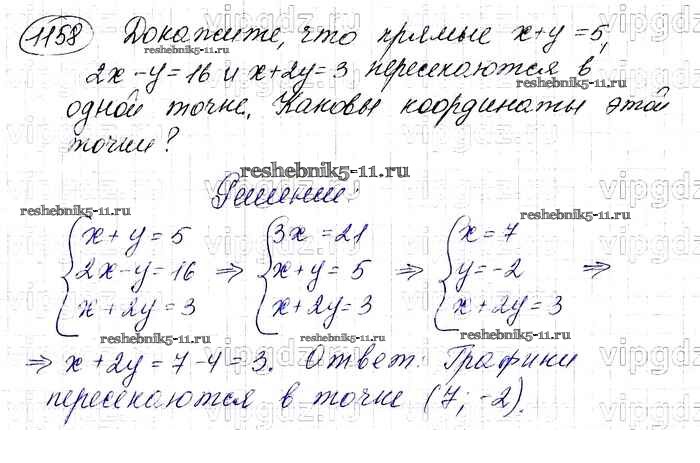 1158 Докажите, что прямые x+y=5,
2x-y=16 и x+2y=3 пересекаются в
одной точке. Каковы координаты этой
точки?
Решение:
{x+y=5 {3x=21 {x=7
{2x-y=16 ⇒ {x+y=5 ⇒ {y=-2 ⇒
{x+2y=3 {x+2y=3 {x+2y=3
⇒ x+2y=7-4=3. Ответ: Графики
пересекаются в точке (7; -2).
reshebnik5-11.ru
reshebnik5-11.ru
reshebnik5-11.ru
reshebnik5-11.ru
reshebnik5-11.ru
reshebnik5-11.ru
reshebnik5-11.ru
vipgdz.ru